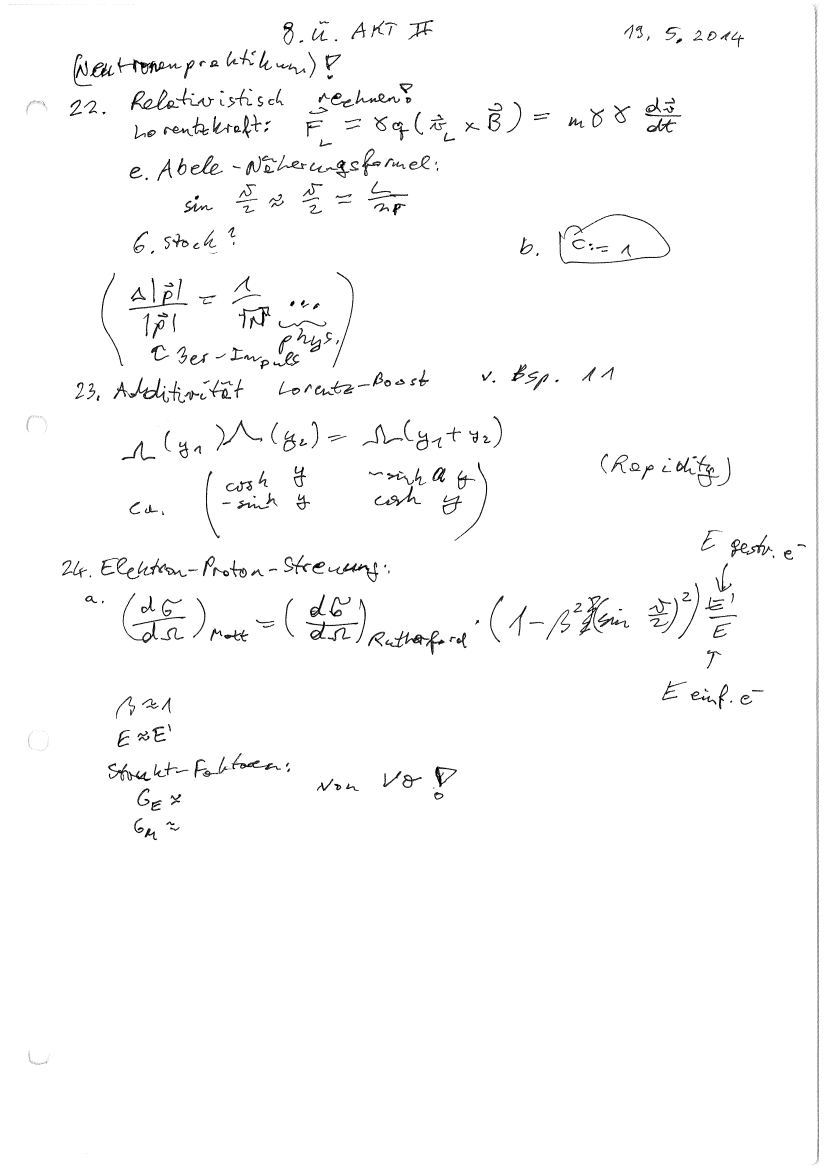 8. Ü. AKT II 19. 5. 2014
(Neutronenpraktikum)!
22. Relativistisch rechnen!
Lorentzkraft: F⃗_L = γq(v⃗_L × B⃗) = mγγ dv⃗/dt
e. Abele-Näherungsformel:
sin ϑ/2 ≈ ϑ/2 = L/2ρ
6. Stock? b. c := 1
(Δ|p⃗|/|p⃗| = 1/√N ...
phys.
3er-Impuls)
23. Additivität Lorentz-Boost v. Bsp. 11
Λ(y₁)Λ(y₂) = Λ(y₁+y₂)
(Rapidity)
(cosh y -sinh y
-sinh y cosh y)
24. Elektron-Proton-Streuung:
E gestr. e⁻
↓
a. (dσ/dΩ)_Mott = (dσ/dΩ)_Rutherford · (1-β²(sin ϑ/2)²) E'/E
↑
E einf. e⁻
β ≈ 1
E ≈ E'
Strukt-Faktoren: von VO!
G_E ≈
G_M ≈